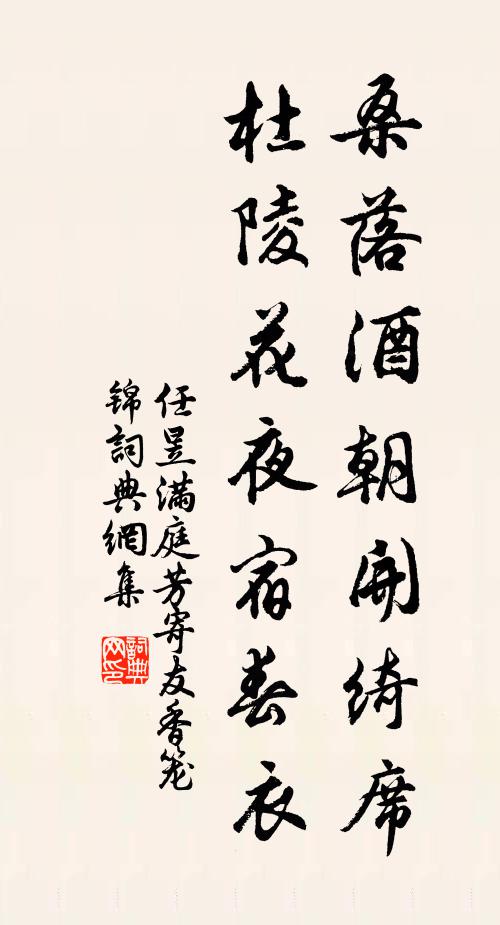 桑落酒朝開綺席
杜陵花夜宿春衣
任昱滿庭芳寄友香笼
锦詞典網集
詞典網印